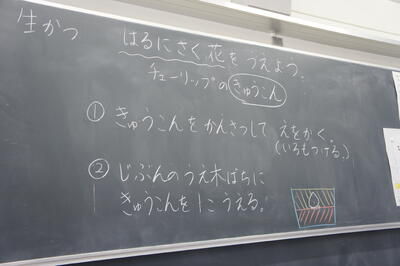 生かつ
はるにさく花をうえよう。
チューリップのきゅうこん
① きゅうこんをかんさつして えをかく。
(いろもつける。)
② じぶんのうえ木ばちに
きゅうこんを1こ うえる。